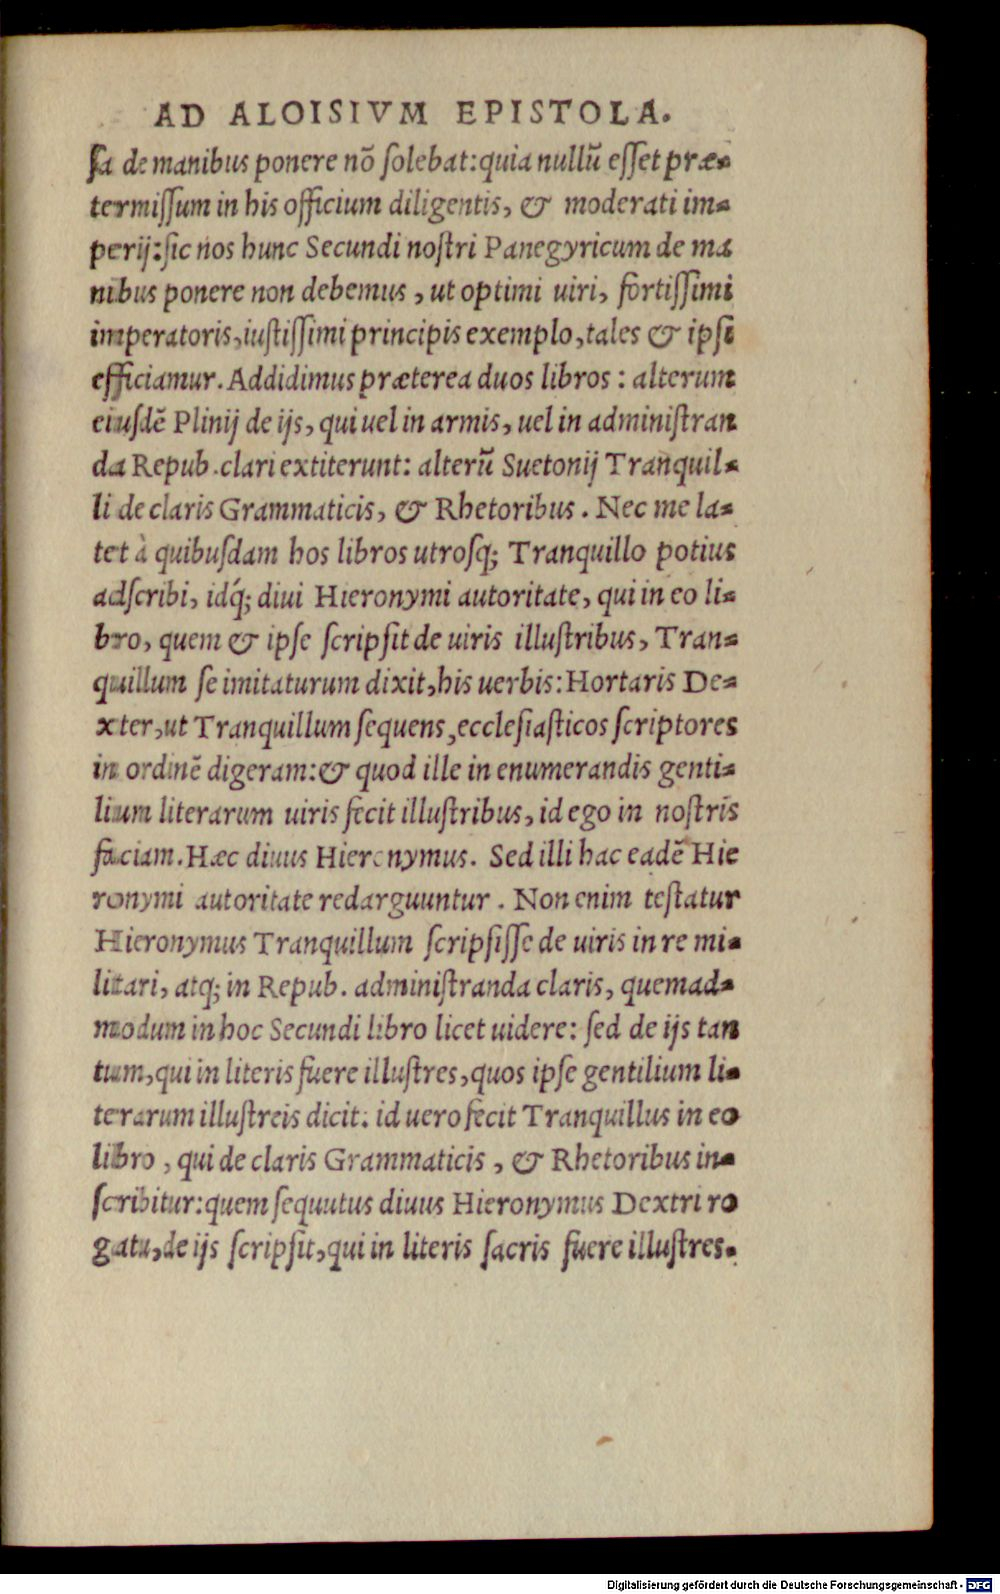 AD ALOISIVM EPISTOLA.
ſa de manibus ponere nō ſolebat: quia nullū eſſet præ-
termiſſum in his officium diligentis, & moderati im-
perij: ſic nos hunc Secundi noſtri Panegyricum de ma
nibus ponere non debemus, ut optimi uiri, fortiſſimi
imperatoris, iuſtiſſimi principis exemplo, tales & ipſi
efficiamur. Addidimus præterea duos libros: alterum
eiuſdē Plinij de ijs, qui uel in armis, uel in adminiſtran
da Repub. clari extiterunt: alterū Suetonij Tranquil-
li de claris Grammaticis, & Rhetoribus. Nec me la-
tet à quibuſdam hos libros utroſq; Tranquillo potius
adſcribi, idq́; diui Hieronymi autoritate, qui in eo li-
bro, quem & ipſe ſcripſit de uiris illuſtribus, Tran-
quillum ſe imitaturum dixit, his uerbis: Hortaris De-
xter, ut Tranquillum ſequens, eccleſiaſticos ſcriptores
in ordinē digeram: & quod ille in enumerandis genti-
lium literarum uiris fecit illuſtribus, id ego in noſtris
faciam. Hæc diuus Hieronymus. Sed illi hac eadē Hie
ronymi autoritate redarguuntur. Non enim teſtatur
Hieronymus Tranquillum ſcripſiſſe de uiris in re mi-
litari, atq; in Repub. adminiſtranda claris, quemad-
modum in hoc Secundi libro licet uidere: ſed de ijs tan
tum, qui in literis fuere illuſtres, quos ipſe gentilium li-
terarum illuſtreis dicit: id uero fecit Tranquillus in eo
libro, qui de claris Grammaticis, & Rhetoribus in-
ſcribitur: quem ſequutus diuus Hieronymus Dextri ro
gatu, de ijs ſcripſit, qui in literis ſacris fuere illuſtres.
Digitalisierung gefördert durch die Deutsche Forschungsgemeinschaft - DFG